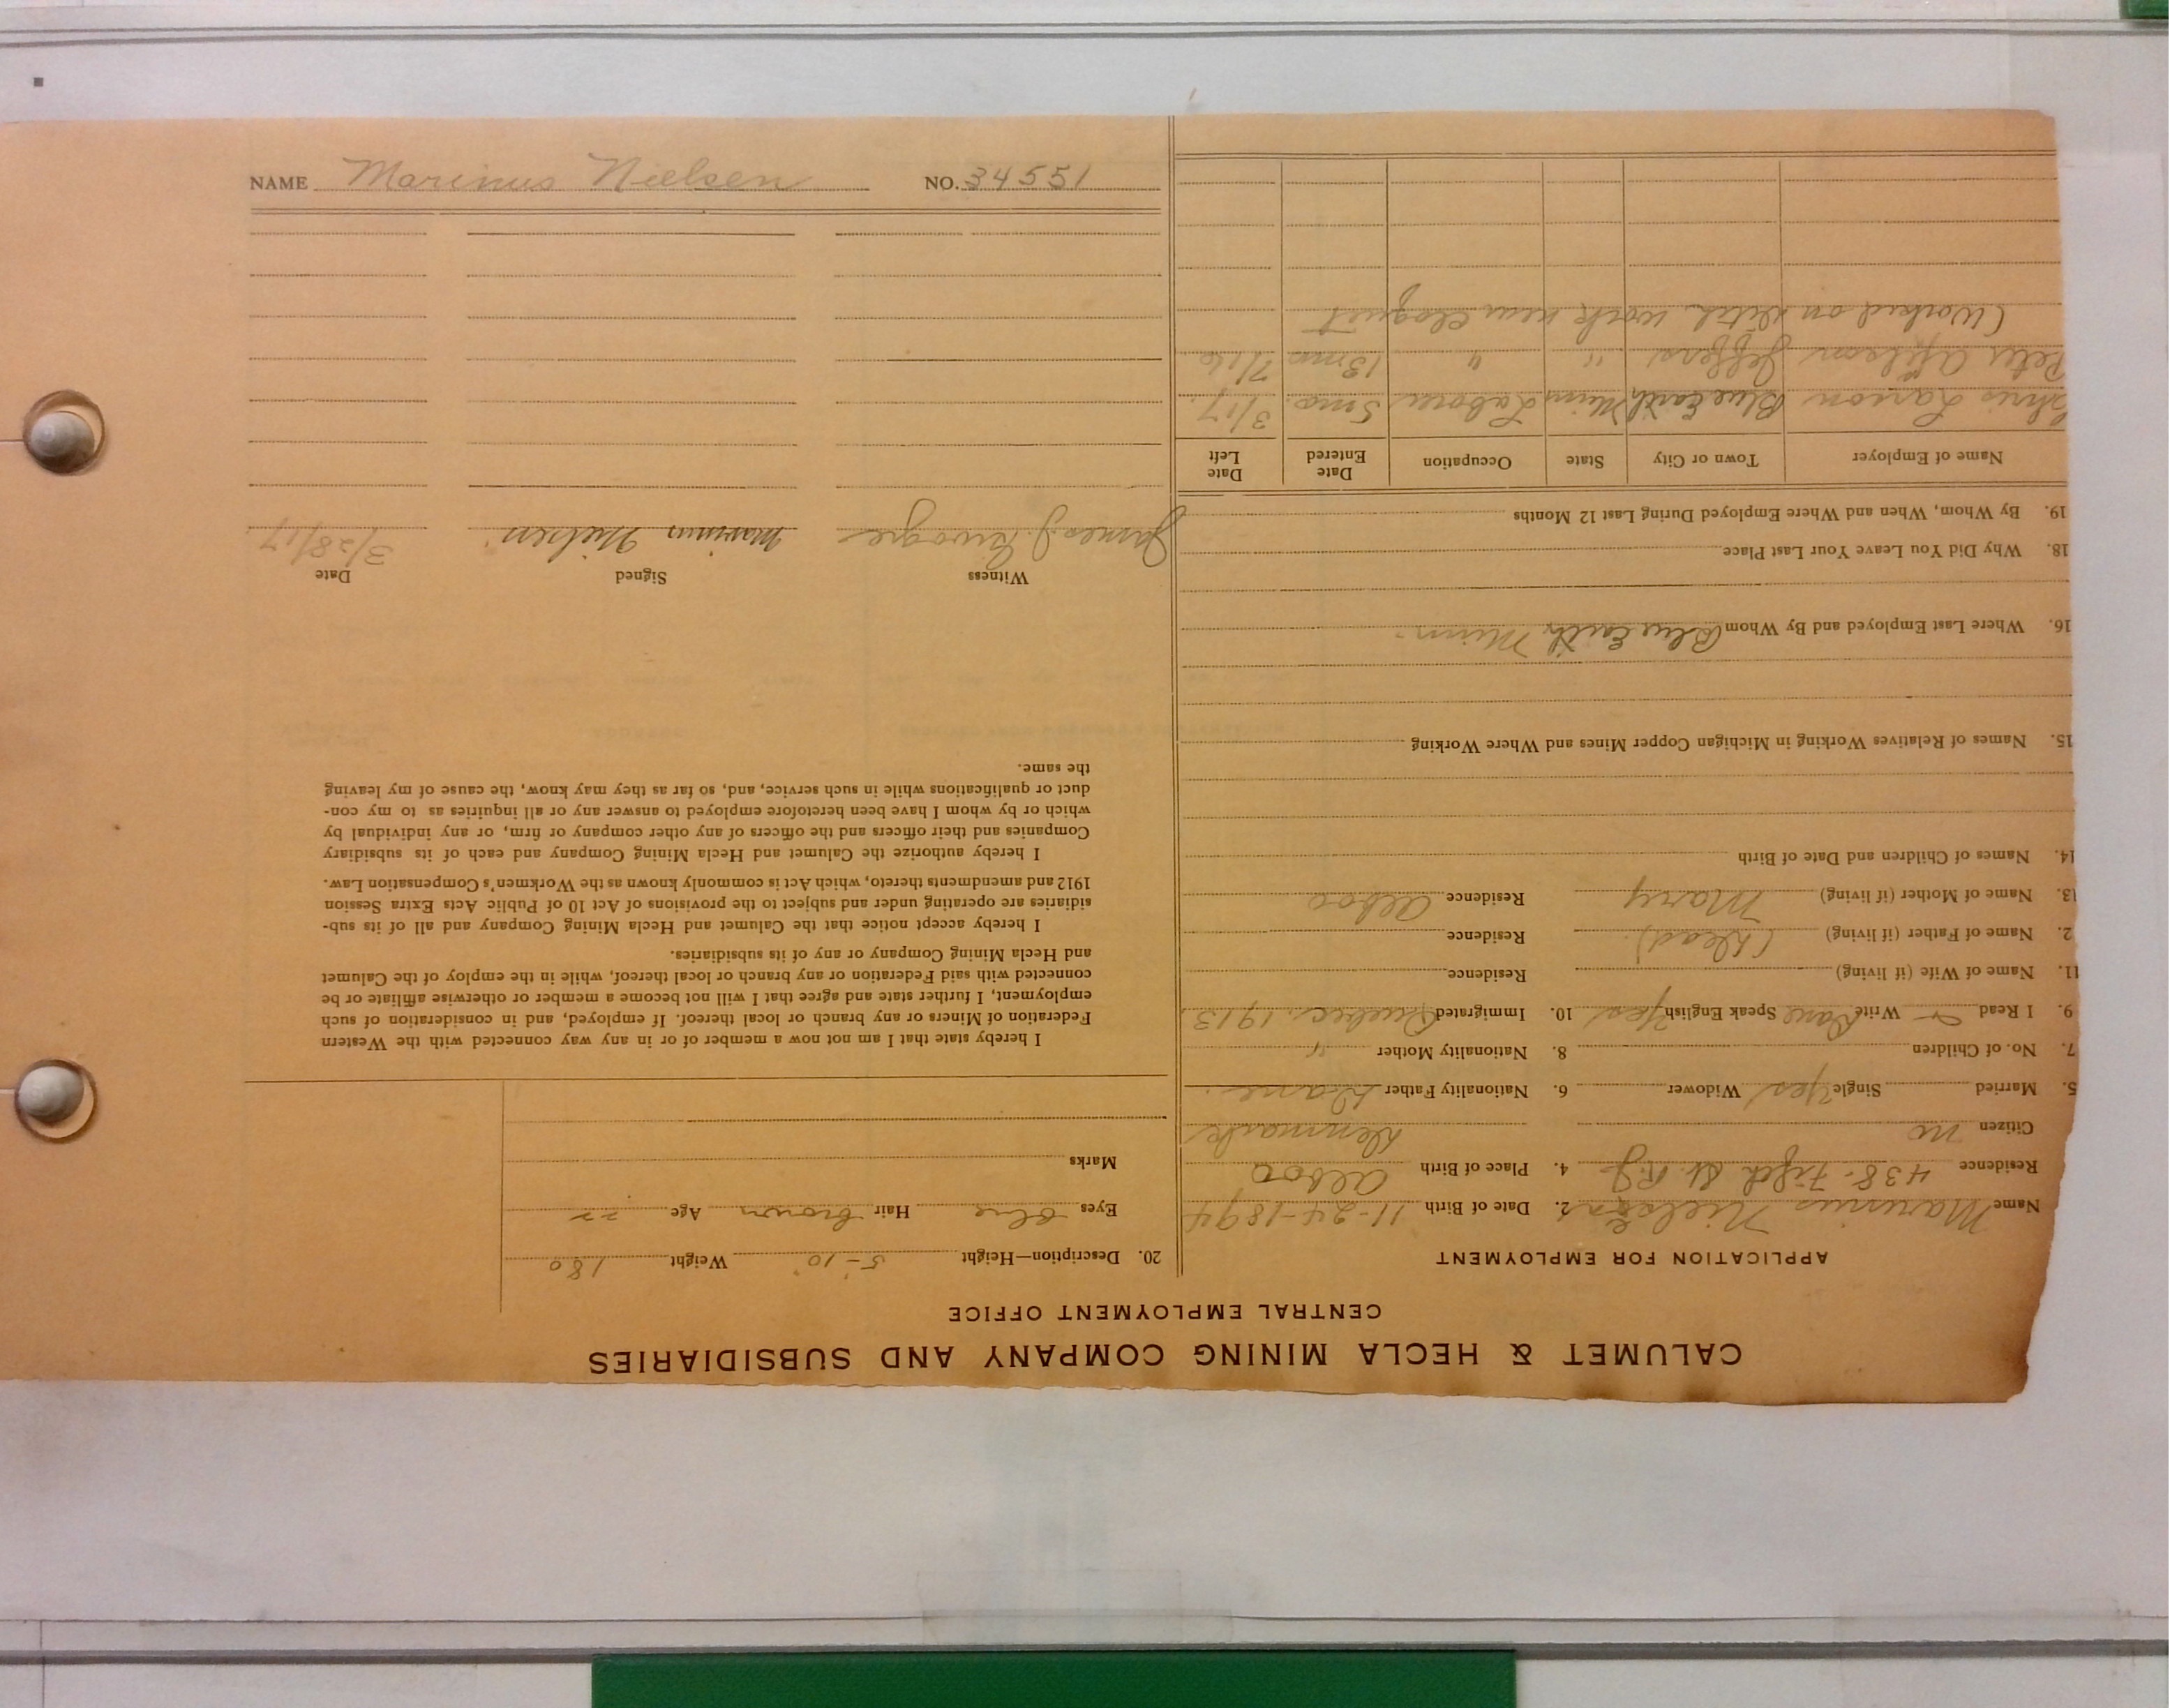 CALUMET & HECLA MINING COMPANY AND SUBSIDIARIES
CENTRAL EMPLOYMENT OFFICE
APPLICATION FOR EMPLOYMENT
Name Marinus Nielsen 2. Date of Birth 11-24-1894
Residence 438-Fifth St 4. Place of Birth Alboo
Citizen no Denmark
5. Married Single Yes Widower 6. Nationality Father Dane
7. No. of Children 8. Nationality Mother "
9. I Read Write Dane Speak English Yes 10. Immigrated Quebec 1913
11. Name of Wife (if living) Residence
2. Name of Father (if living) (Dead) Residence
13. Name of Mother (if living) Mary Residence Alboo
14. Names of Children and Date of Birth
15. Names of Relatives Working in Michigan Copper Mines and Where Working
16. Where Last Employed and By Whom Blue Earth Minn.
18. Why Did You Leave Your Last Place
19. By Whom, When and Where Employed During Last 12 Months
Name of Employer Town or City State Occupation Date Entered Date Left
Chris Larson Blue Earth Minn Laborer 5 mo. 3/17.
Peter Jeffers " " 13 mo 7/16
(Worked on ditch work near Cloquet
20. Description—Height 5-10" Weight 180
Eyes Blue Hair Brown Age 22
Marks
I hereby state that I am not now a member of or in any way connected with the Western
Federation of Miners or any branch or local thereof. If employed, and in consideration of such
employment, I further state and agree that I will not become a member or otherwise affiliate or be
connected with said Federation or any branch or local thereof, while in the employ of the Calumet
and Hecla Mining Company or any of its subsidiaries.
I hereby accept notice that the Calumet and Hecla Mining Company and all of its sub-
sidiaries are operating under and subject to the provisions of Act 10 of Public Acts Extra Session
1912 and amendments thereto, which Act is commonly known as the Workmen's Compensation Law.
I hereby authorize the Calumet and Hecla Mining Company and each of its subsidiary
Companies and their officers and the officers of any other company or firm, or any individual by
which or by whom I have been heretofore employed to answer any or all inquiries as to my con-
duct or qualifications while in such service, and, so far as they may know, the cause of my leaving
the same.
Witness Signed Date
James J. Marinus Nielsen 3/28/17.
NAME Marinus Nielsen NO. 34551